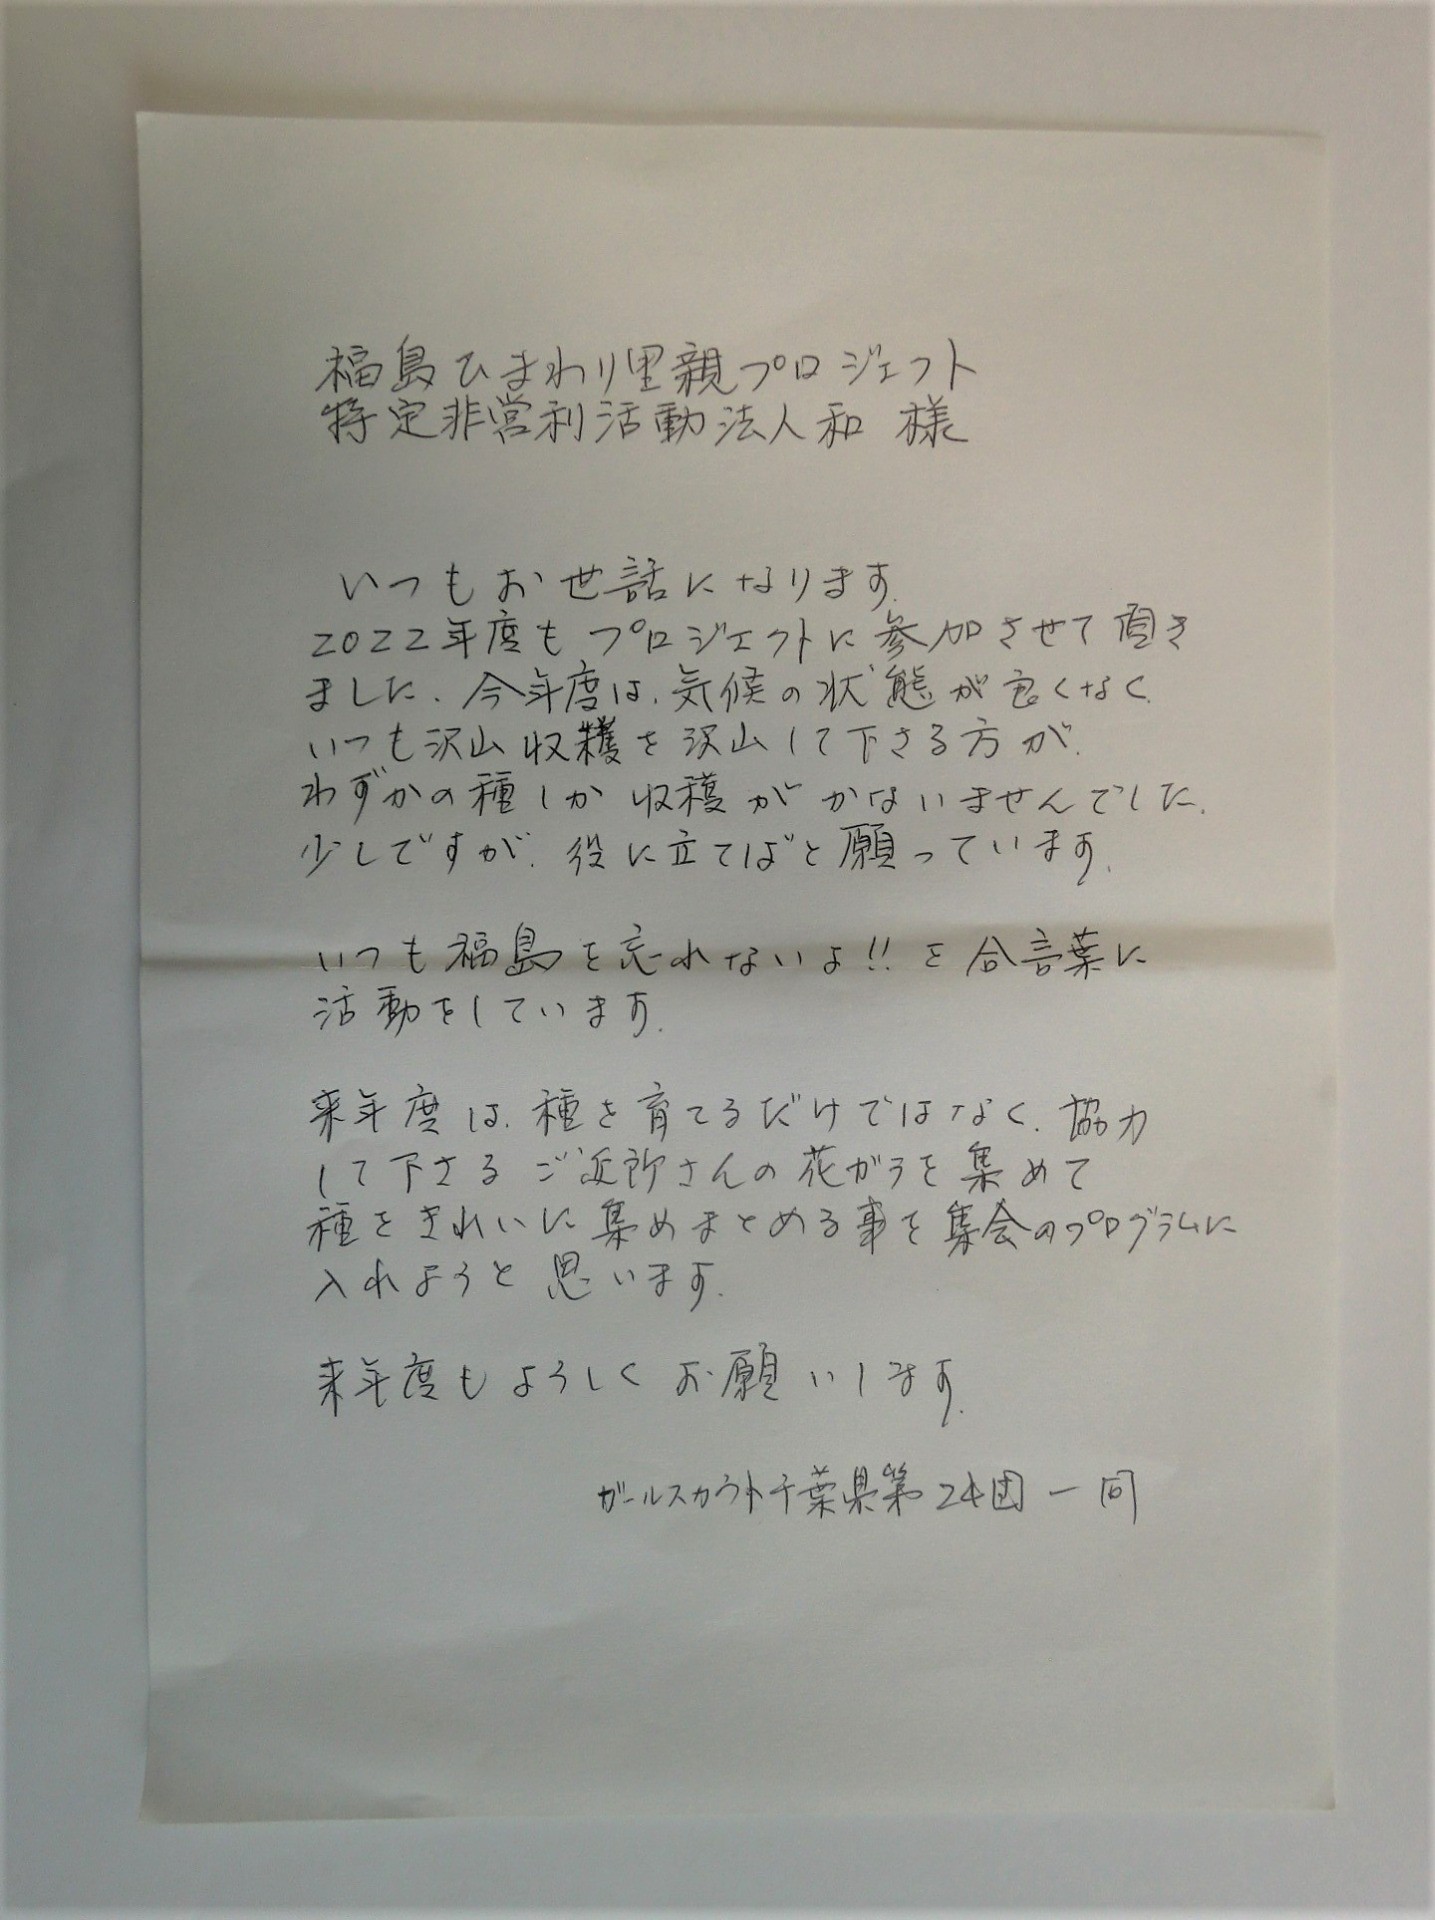 福島ひまわり里親プロジェクト
特定非営利活動法人和 様
いつもお世話になります.
2022年度も プロジェクトに参加させて頂き
ました. 今年度は、気候の状態が良くなく
いつも沢山収穫を沢山して下さる方が、
わずかの種しか収穫がかないませんでした.
少しですが、役に立てばと願っています.
いつも福島を忘れないよ!! を合言葉に
活動をしています.
来年度は、種を育てるだけではなく、協力
して下さる ご近所さんの花がらを集めて
種をきれいに集めまとめる事を集会のプログラムに
入れようと思います.
来年度もよろしくお願いします.
ガールスカウト千葉県第24団一同